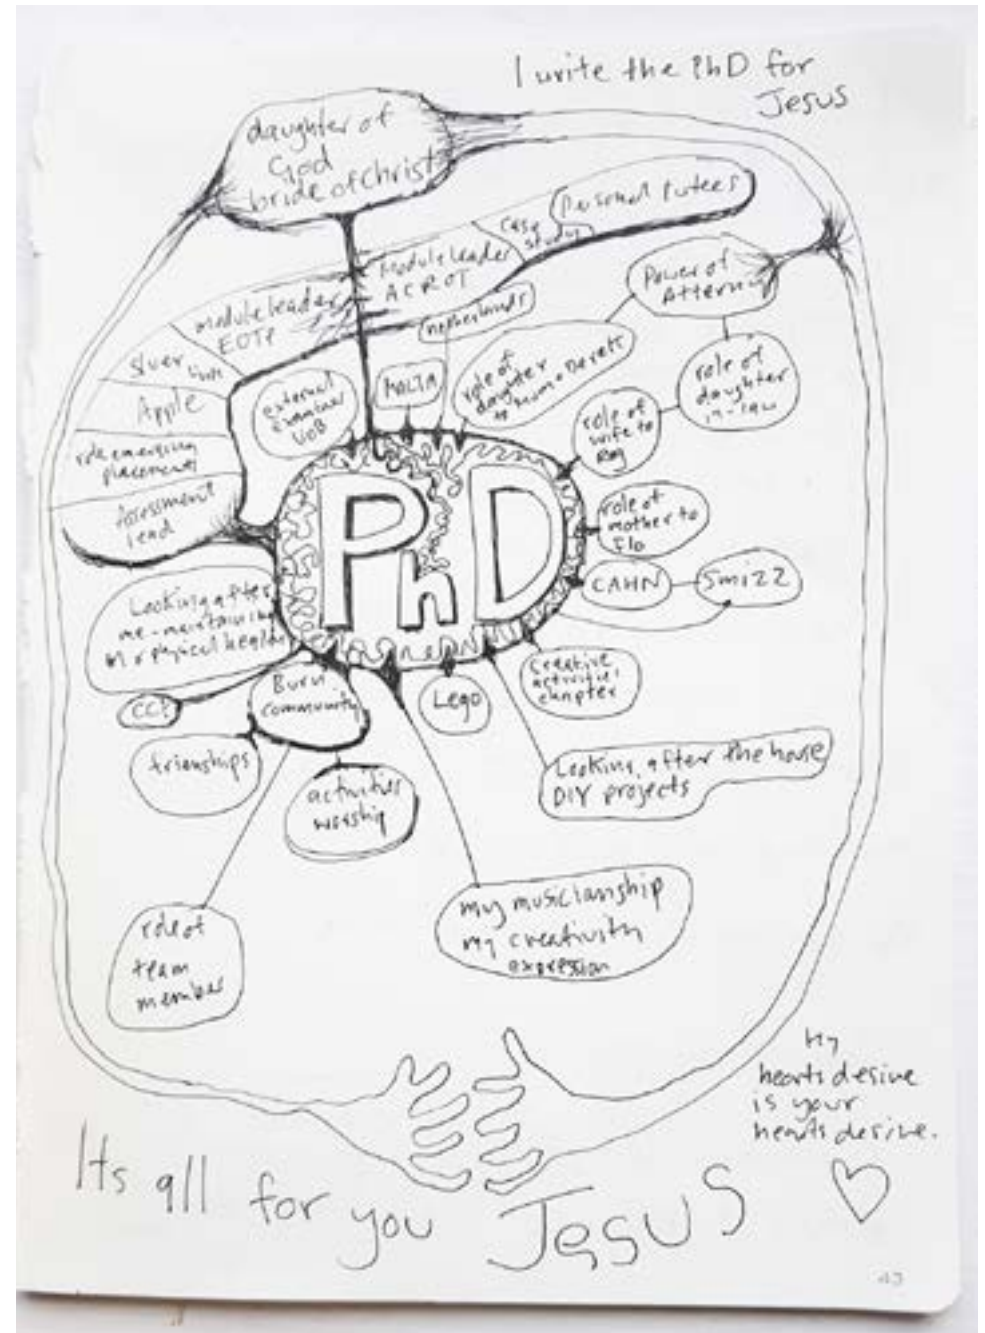 I write the PhD for
Jesus
daughter of
God
bride of Christ
Personal tutees
case
study
Module leader
ACROT
module leader
EOTP
netherlands
Power of
Attorney
Silver
Apple
role emerging
placements
Assessment
lead
external
examiner
UoB
MALTA
role of
daughter
to mum +
role of
wife to
Ray
role of
daughter
in-law
PhD
role of
mother to
Flo
CAHN
Smizz
Looking after
me-maintaining
physical health
CCF
Burn
community
frienships
activities
worship
Lego
Creative
activities
chapter
Looking after the house
DIY projects
role of
team
member
my musicianship
my creativity
expression
My
hearts desire
is your
hearts desire.
Its all for you Jesus
43